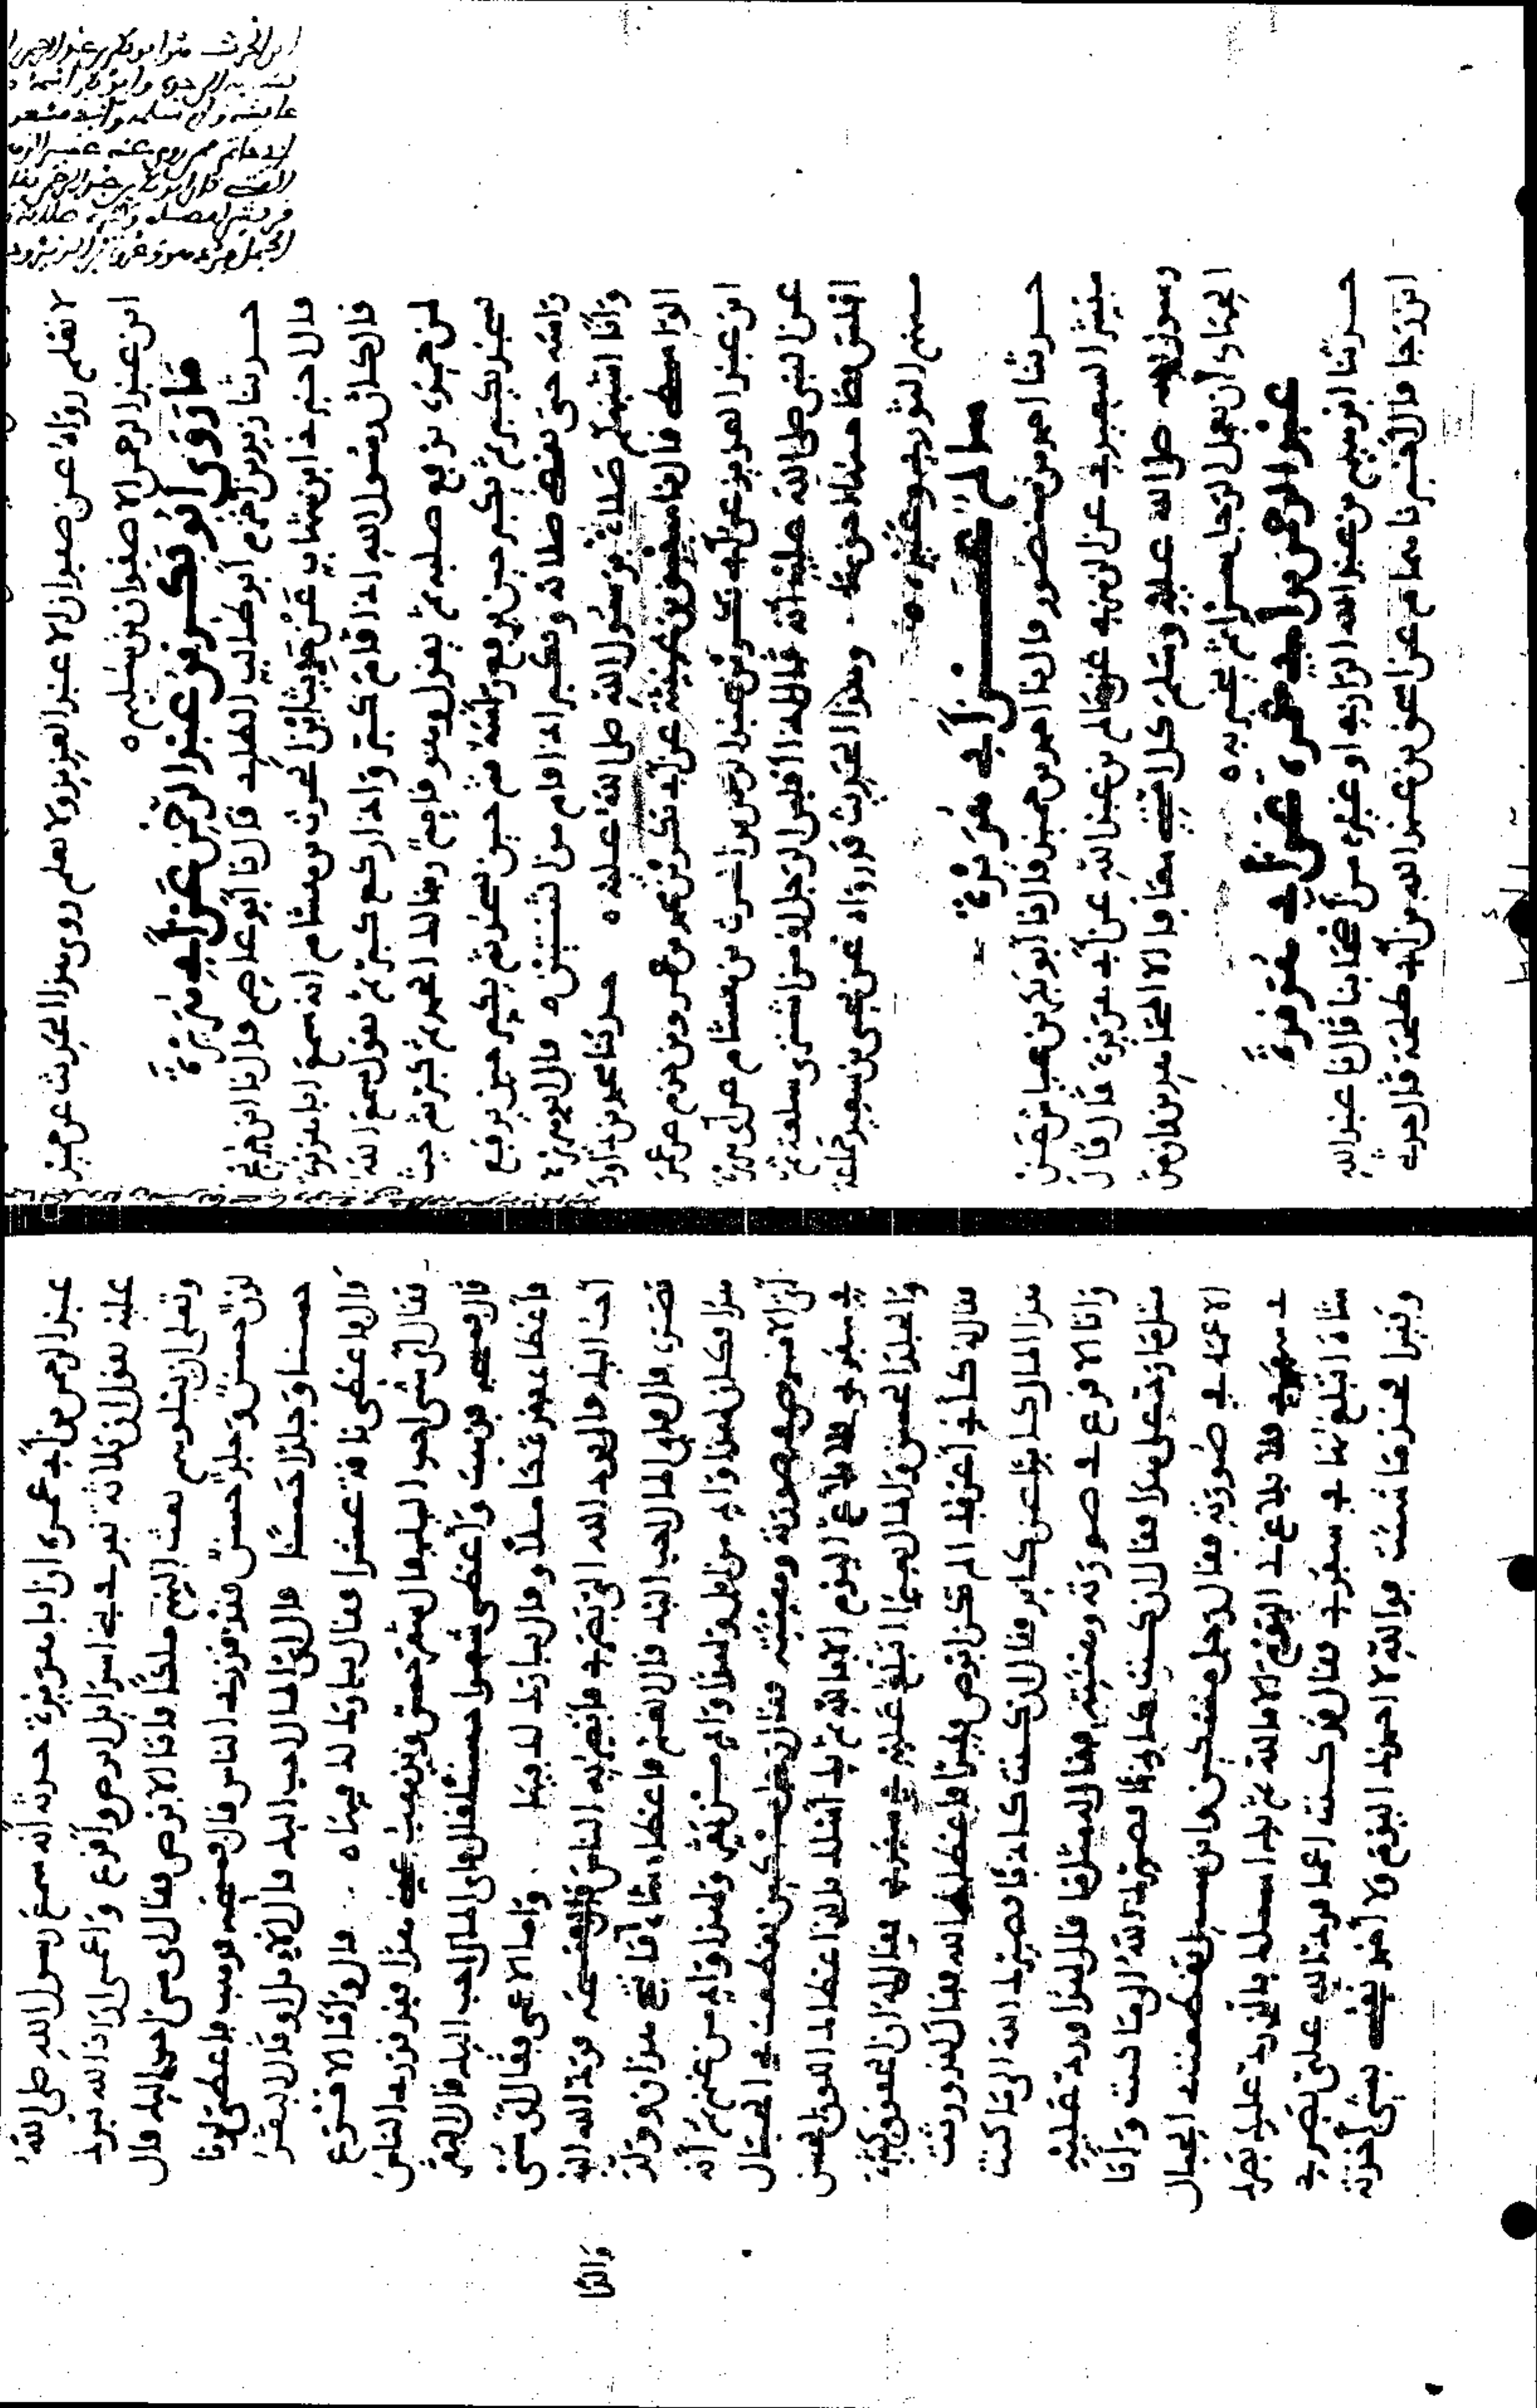 لا نعلم رواه عن صفوان الا عبد العزيز ولا نعلم روى هذا الحديث عن حميد
ابن عبد الرحمن الا صفوان بن سليم ه
ما روى أبو بكر بن عبد الرحمن عن أبي هريرة
حدثنا زيد بن أخزم أبو طالب الطائي قال نا أبو عاصم قال نا ابن جريج
قال اخبرني ابن شهاب عن ابن الحرث بن هشام انه سمع ابا هريرة
قال كان رسول الله اذا قام كبر واذا ركع كبر ثم يقول سمع الله
لمن حمده يرفع صلبه ثم يقول وهو قائم ربنا لك الحمد ثم كبر ثم
يسجد ثم تكبر حين يرفع رأسه ثم حين يسجد ثم يكبر حين يرفع
رأسه حتى يقضي صلاته ويكبر اذا قام من الثنتين ه قال ابو هريرة
وأنا اشبهكم صلاة برسول الله صلى الله عليه ه حدثنا محمد بن داود
الواسطي قال نا سفيان بن عيينة عن أبي بكر بن محمد بن عمرو بن حزم عن عمر
ابن عبد العزيز عن أبي بكر بن عبد الرحمن بن الحرث بن هشام عن أبي هريرة
عن النبي صلى الله عليه أنه قال اذا أفلس الرجل او من اشترى سلعة ثم
افلس احق بها وهذا الحديث قد رواه عن يحيى بن سعيد جماعة
منهم الثوري وغيره ه
سالم عن أبي هريرة
حدثنا احمد بن منصور قال نا احمد بن حميد قال نا أبو بكر بن عياش عن
مبشر السعيدي عن الزهري عن سالم بن عبد الله عن أبي هريرة قال قال
رسول الله صلى الله عليه وسلم كل أمتي معافى الا المجاهرين فان من
الجهار أن يعمل الرجل سرا ثم يخبر به ه
عبد الرحمن بن أبي عمرة عن أبي هريرة
حدثنا ابراهيم بن عبد الله او غيره من أصحابنا قال نا عبد الله
ابن رجا قال أخبرنا همام عن اسحق بن عبد الله بن أبي طلحة قال حدثني
عبد الرحمن بن أبي عمرة ان ابا هريرة حدثه أنه سمع رسول الله صلى الله
عليه يقول ان ثلاثة نفر في بني اسرايل ابرص وأقرع وأعمى اراد الله تبرك
وتعلى ان يبتليهم بعث اليهم ملكا فاتا الابرص فقال اي شيء احب اليك قال
لون حسن وجلد حسن فقد قذرني الناس قال فمسحه فذهب واعطي لونا
حسنا وجلدا حسنا قال اي المال احب اليك قال الابل او قال البقر
قال فاعطي ناقة عشرا فقال يبارك لك فيها ه قال وأتا الاقرع
فقال أي شيء احب اليك قال شعر حسن ويذهب عني هذا فقد قذرني الناس
قال فمسحه فذهب وأعطي شعرا حسنا قال فاي المال احب اليك قال البقر
فأعطاه بقرة حاملا وقال يبارك لك فيها وأتا الاعمى فقال أي شيء
أحب اليك قال يرد الله الي بصري فأبصر به الناس قال فمسحه فرد الله اليه
بصره قال فاي المال احب اليك قال الغنم فاعطاه شاة فأنتج هذان وولد
هذا فكان لهذا واد من ابل ولهذا واد من بقر ولهذا واد من غنم ثم أنه
أتى الابرص في صورته وهيئته فقال رجل مسكين تقطعت بي الحبال
في سفري فلا بلاغ اليوم الا بالله ثم بك أسئلك بالذي اعطاك اللون الحسن
والجلد الحسن والمال بعيرا أتبلغ عليه في سفري فقال له ان الحقوق كثيرة
فقال له كأني أعرفك الم تكن ابرص فقيرا فاعطاك الله فقال لقد ورثت
هذا المال كابرا عن كابر فقال ان كنت كاذبا فصيرك الله الى ما كنت
وأتا الاقرع في صورته وهيئته فقال له مثلها قال لهذا ورد عليه
مثل ما رد على هذا فقال ان كنت كاذبا فصيرك الله الى ما كنت وأتا
الاعمى في صورته فقال رجل مسكين وابن سبيل تقطعت به الحبال
في سفري فلا بلاغ لي اليوم الا بالله ثم بك اسئلك بالذي رد عليك بصرك
شاة أتبلغ بها في سفري فقال قد كنت اعما فرد الله علي بصري
وفقيرا فخذ ما شئت فوالله لا احمدك اليوم لا أخذ بشيء أخذته